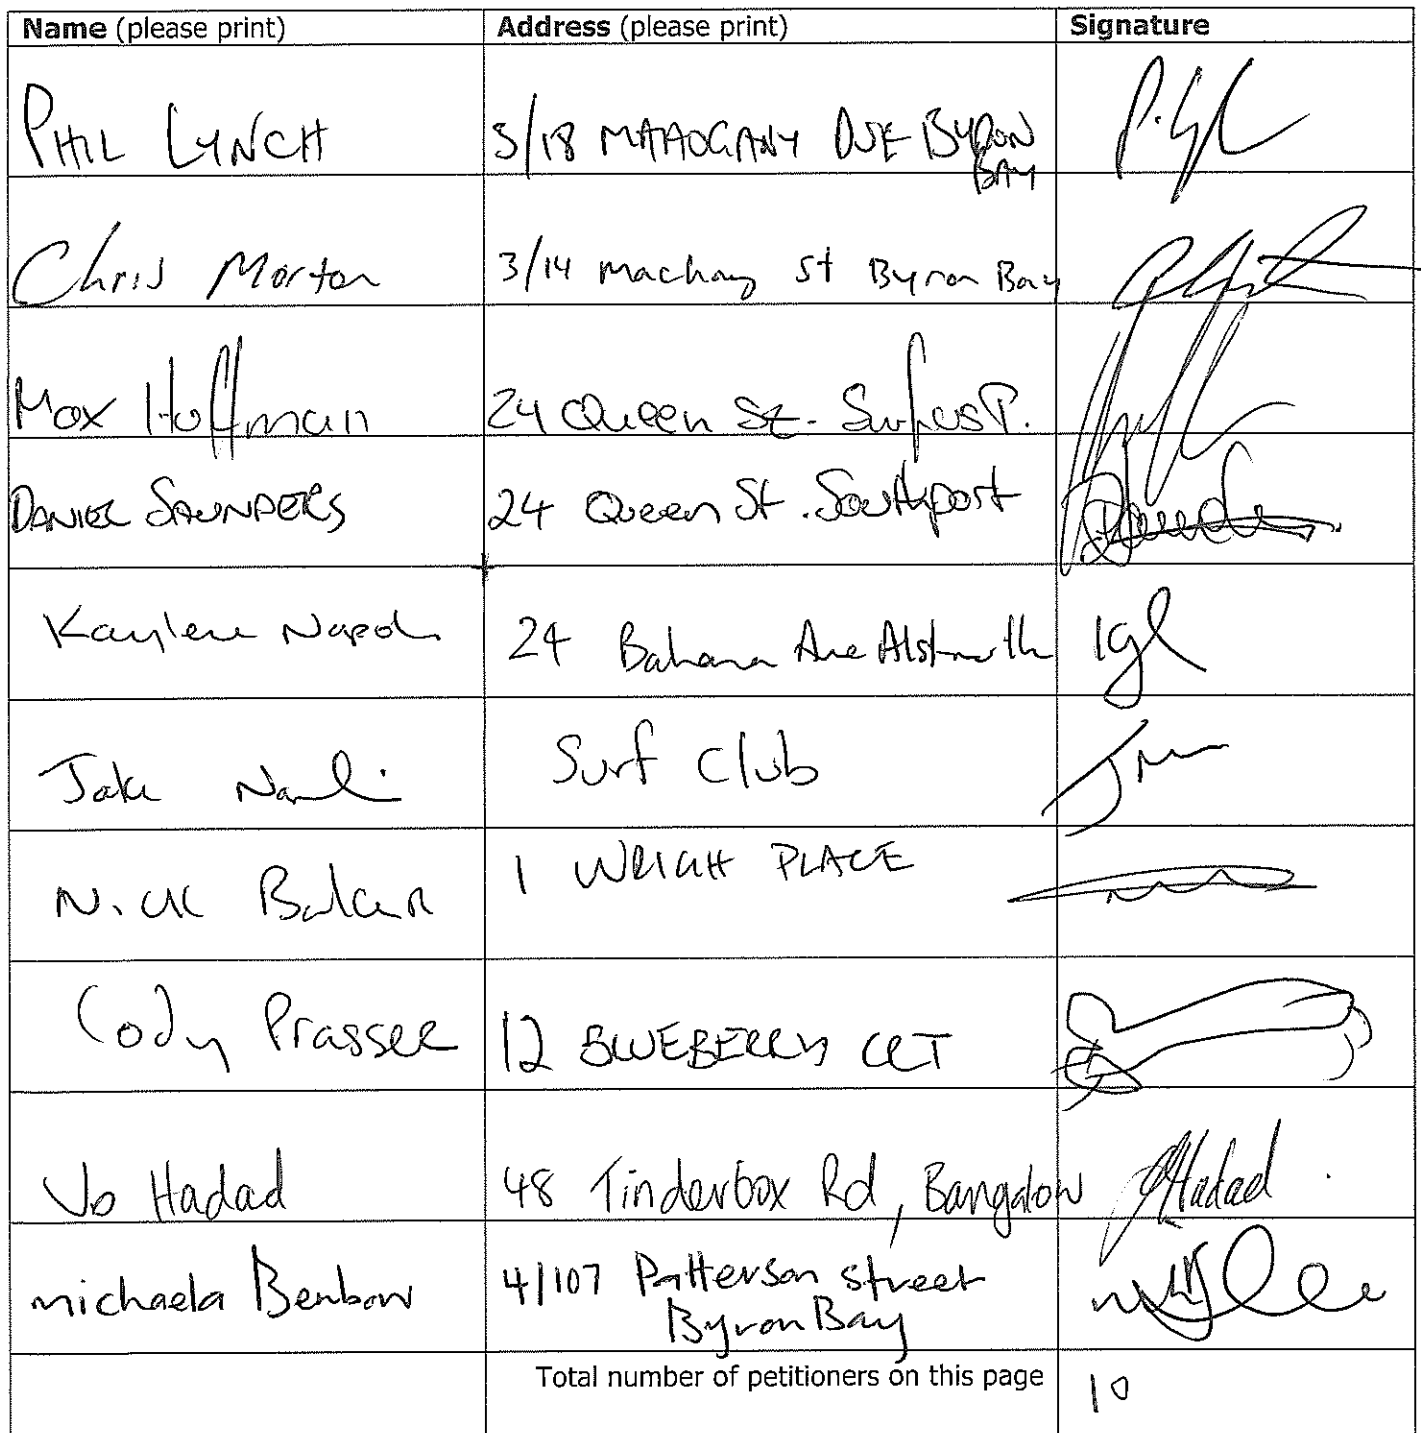 Name (please print) Address (please print) Signature
PHIL LYNCH 5/18 MAHOGANY DVE BYRON
BAY
Chris Morton 3/14 Machay st Byron Bay
Max Hoffman 24 Queen St. Surfers P.
DANIEL SAUNDERS 24 Queen St. Southport
Kaylene 24 Ave
Jake Surf Club
Nick 1 PLACE
Cody Prasser 12 BLUEBERRY CRT
Jo Hadad 48 Tinderbox Rd, Bangalow JHadad
michaela Benbow 4/107 Patterson street
Byron Bay
Total number of petitioners on this page 10